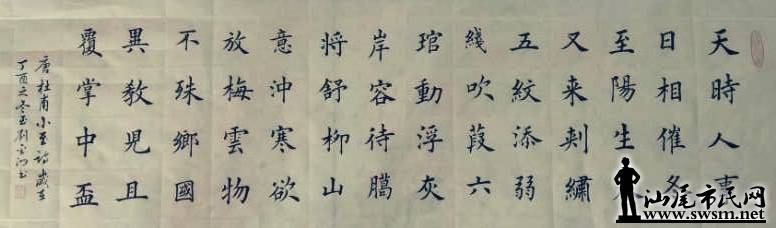 天時人事
日相催冬
至陽生
又来刺繡
五紋添弱
綫吹葭六
琯動浮灰
岸容待臈
将舒柳山
意沖寒欲
放梅雲物
不殊鄉國
異教児且
覆掌中盃
唐杜甫小至詩歲在
丁酉之冬至劉书
汕尾市民网
www.swsm.net